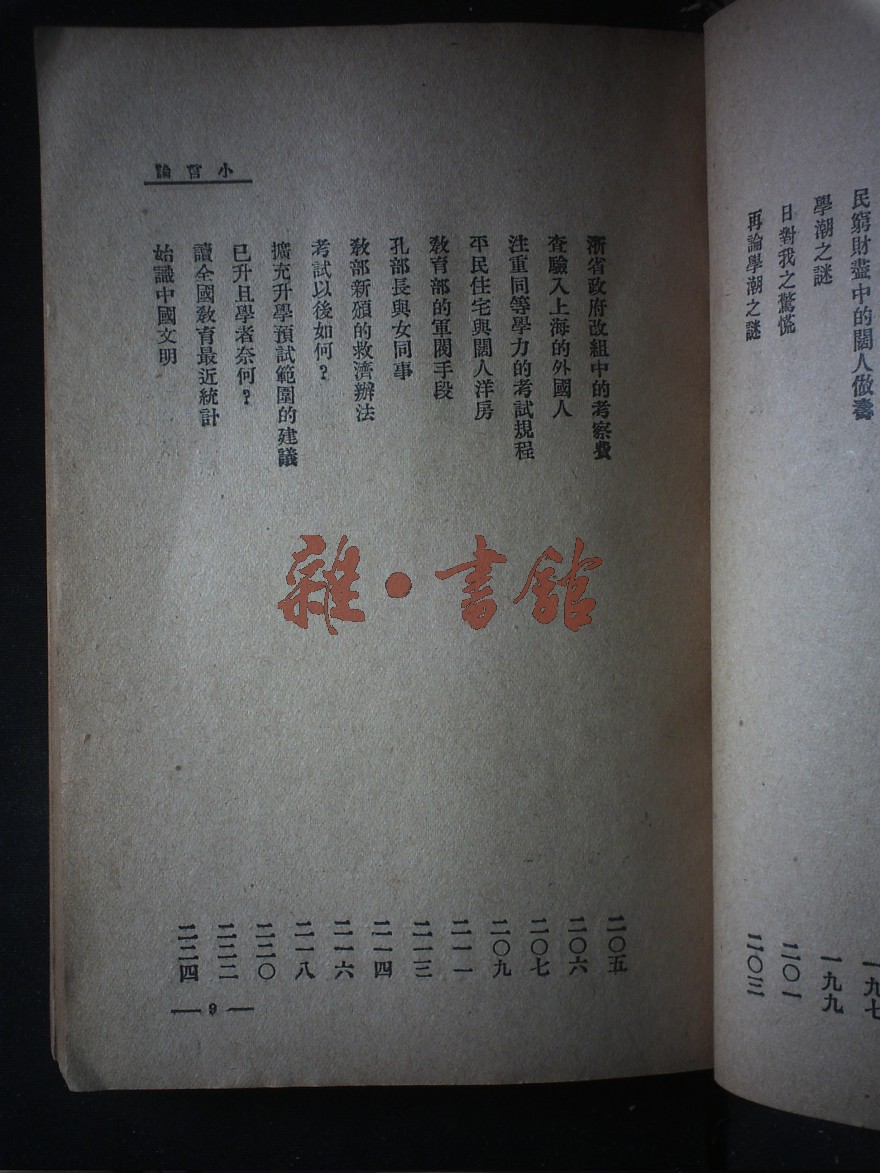 民窮財盡中的闊人做壽
一九七
學潮之謎
一九九
日對我之驚慌
二〇一
再論學潮之謎
二〇三
小言論
浙省政府改組中的考察費
二〇五
查驗入上海的外國人
二〇六
注重同等學力的考試規程
二〇七
平民住宅與闊人洋房
二〇九
教育部的軍閥手段
二一一
孔部長與女同事
二一三
教部新頒的救濟辦法
二一四
考試以後如何？
二一六
擴充升學預試範圍的建議
二一八
已升且學者奈何？
二二〇
讀全國教育最近統計
二二二
始識中國文明
二二四
— 9 —
雜·書館